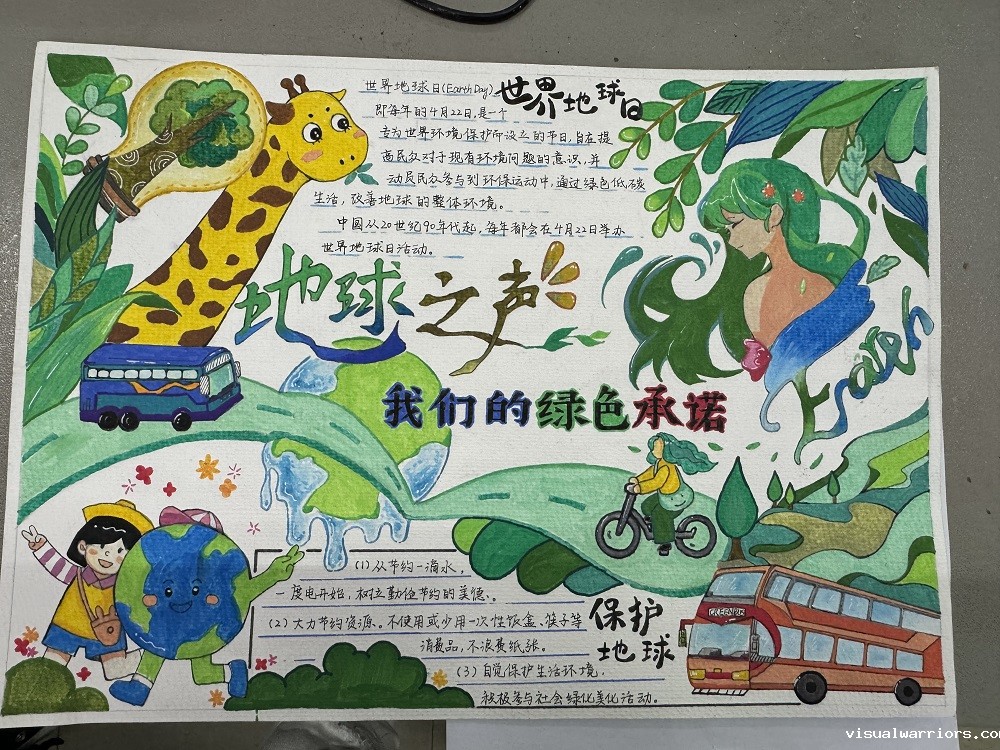 世界地球日(Earth Day)
世界地球日
即每年的4月22日,是一个
专为世界环境保护而设立的节日,旨在提
高民众对于现有环境问题的意识,并
动员民众参与到环保运动中,通过绿色低碳
生活,改善地球的整体环境。
中国从20世纪90年代起,每年都会在4月22日举办
世界地球日活动。
地球之声
Earth
我们的绿色承诺
(1)从节约一滴水,
一度电开始,树立勤俭节约的美德。
(2)大力节约资源。不使用或少用一次性饭盒、筷子等
消费品,不浪费纸张。
(3)自觉保护生活环境,
积极参与社会绿化美化活动。
保护
地球
visualwarriors.co